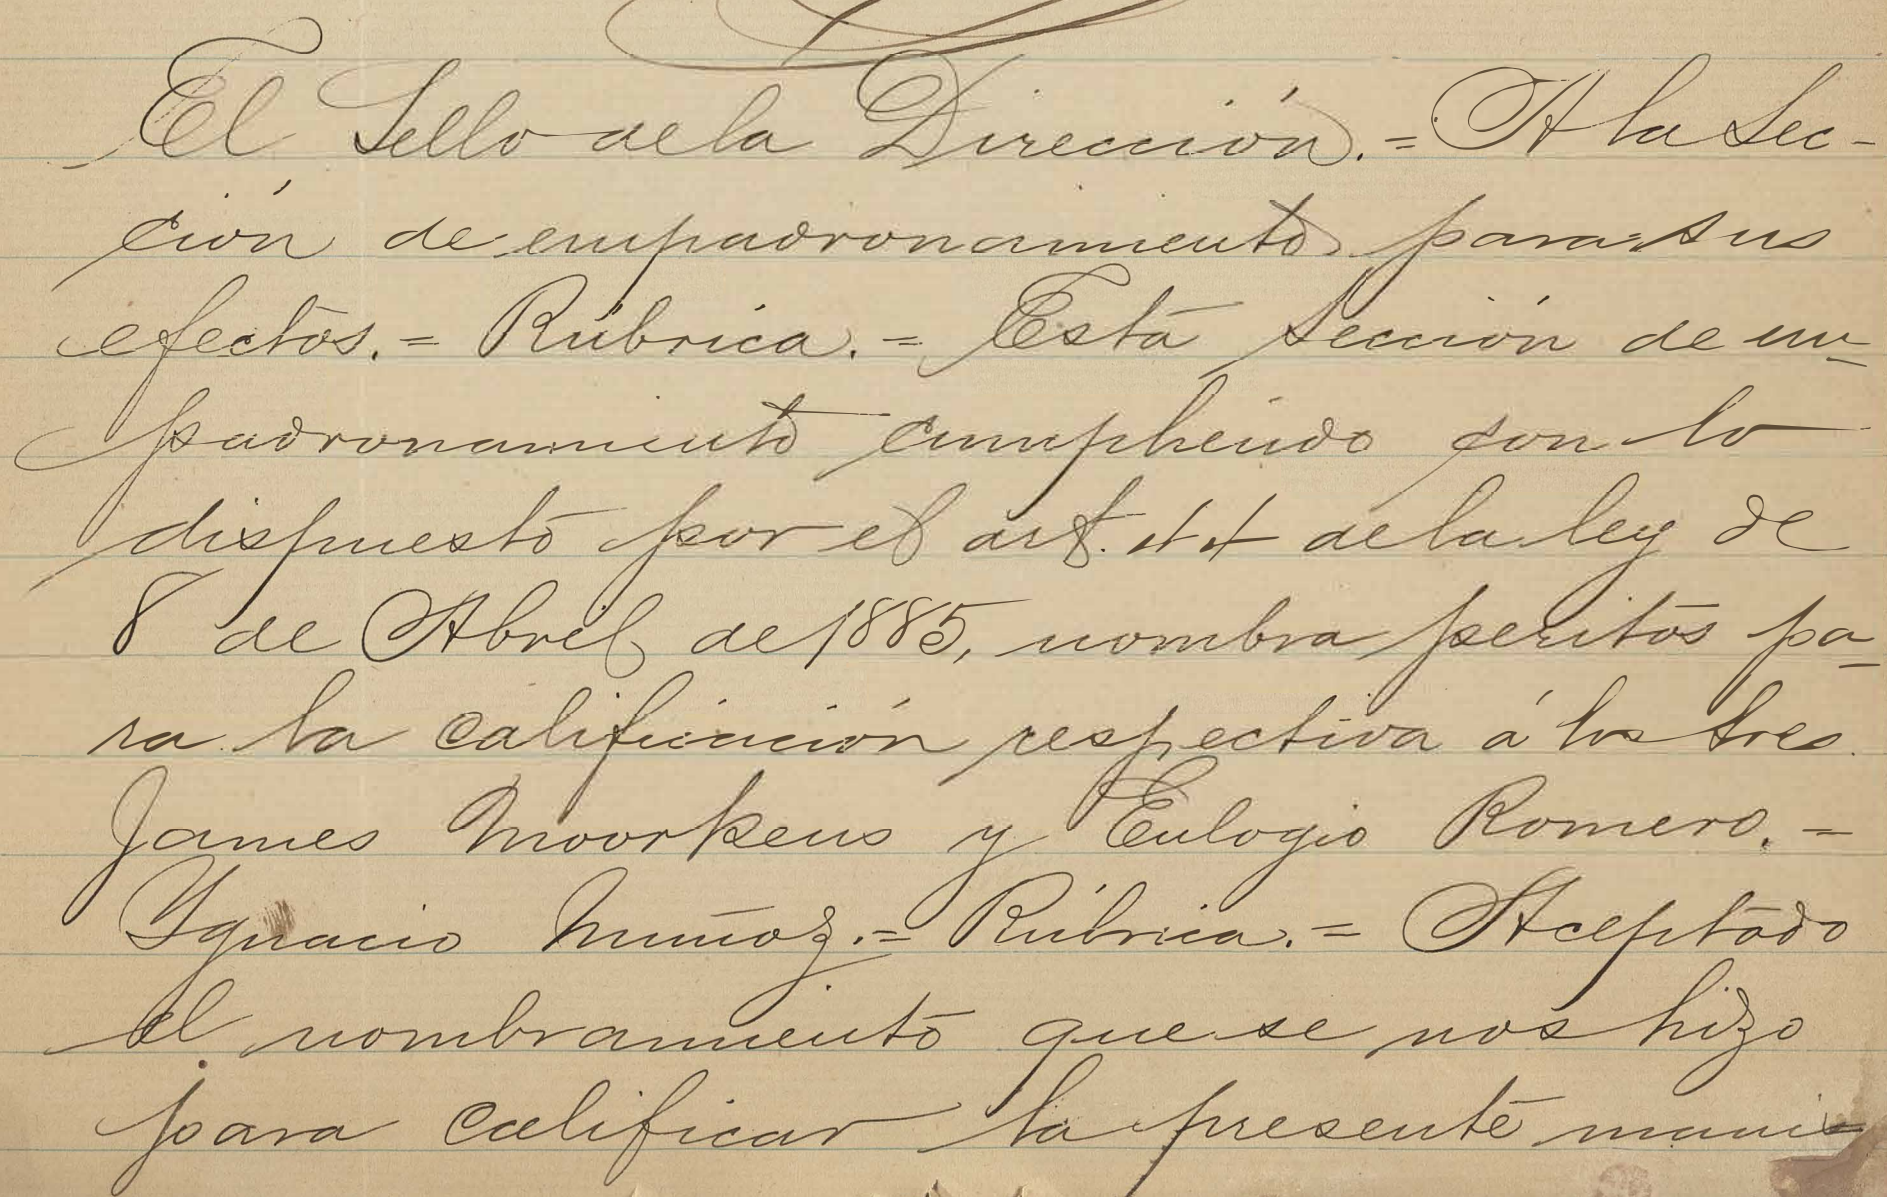 El Sello de la Dirección.= A la Sec-
ción de empadronamiento para sus
efectos.= Rúbrica.= Esta Sección de em-
padronamiento cumpliendo con lo
dispuesto por el art. 44 de la ley de
8 de Abril de 1885, nombra peritos pa-
ra la calificación respectiva á los Sres.
James Moorkens y Eulogio Romero.=
Ygnacio Muñoz.= Rúbrica.= Aceptado
el nombramiento que se nos hizo
para calificar la presente mani-